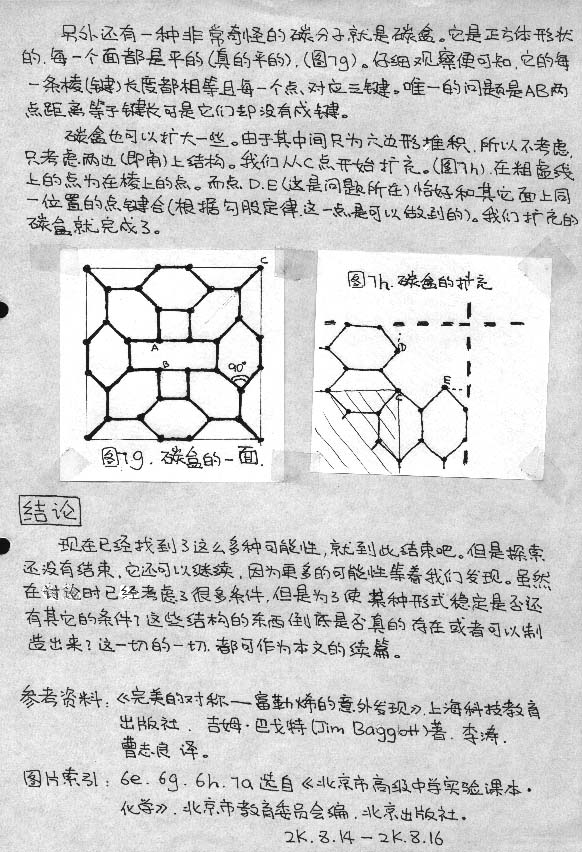 另外还有一种非常奇怪的碳分子就是碳盒。它是正方体形状
的,每一个面都是平的(真的平的),(图7g)。仔细观察便可知,它的每
一条棱(键)长度都相等且每一个点、对应三键。唯一的问题是AB两
点距离等于键长可是它们却没有成键。
碳盒也可以扩大一些。由于其中间只为六边形堆积,所以不考虑,
只考虑两边(即角)上结构。我们从C点开始扩充。(图7h),在粗虚线
上的点为在棱上的点。而点D.E(这是问题所在)恰好和其它面上同
一位置的点键合(根据勾股定律,这一点是可以做到的)。我们扩充的
碳盒就完成了。
C
A
B
90°
图7g.碳盒的一面.
图7h.碳盒的扩充
D
C
E
结论
现在已经找到了这么多种可能性,就到此结束吧。但是探索
还没有结束,它还可以继续,因为更多的可能性等着我们发现。虽然
在讨论时已经考虑了很多条件,但是为了使某种形式稳定是否还
有其它的条件?这些结构的东西倒底是否真的存在或者可以制
造出来?这一切的一切,都可作为本文的续篇。
参考资料:《完美的对称——富勒烯的意外发现》.上海科技教育
出版社.吉姆·巴戈特(Jim Baggott)著.李涛.
曹志良 译。
图片索引:6e.6g.6h.7a选自《北京市高级中学实验课本·
化学》.北京市教育委员会编.北京出版社。
2K.8.14—2K.8.16